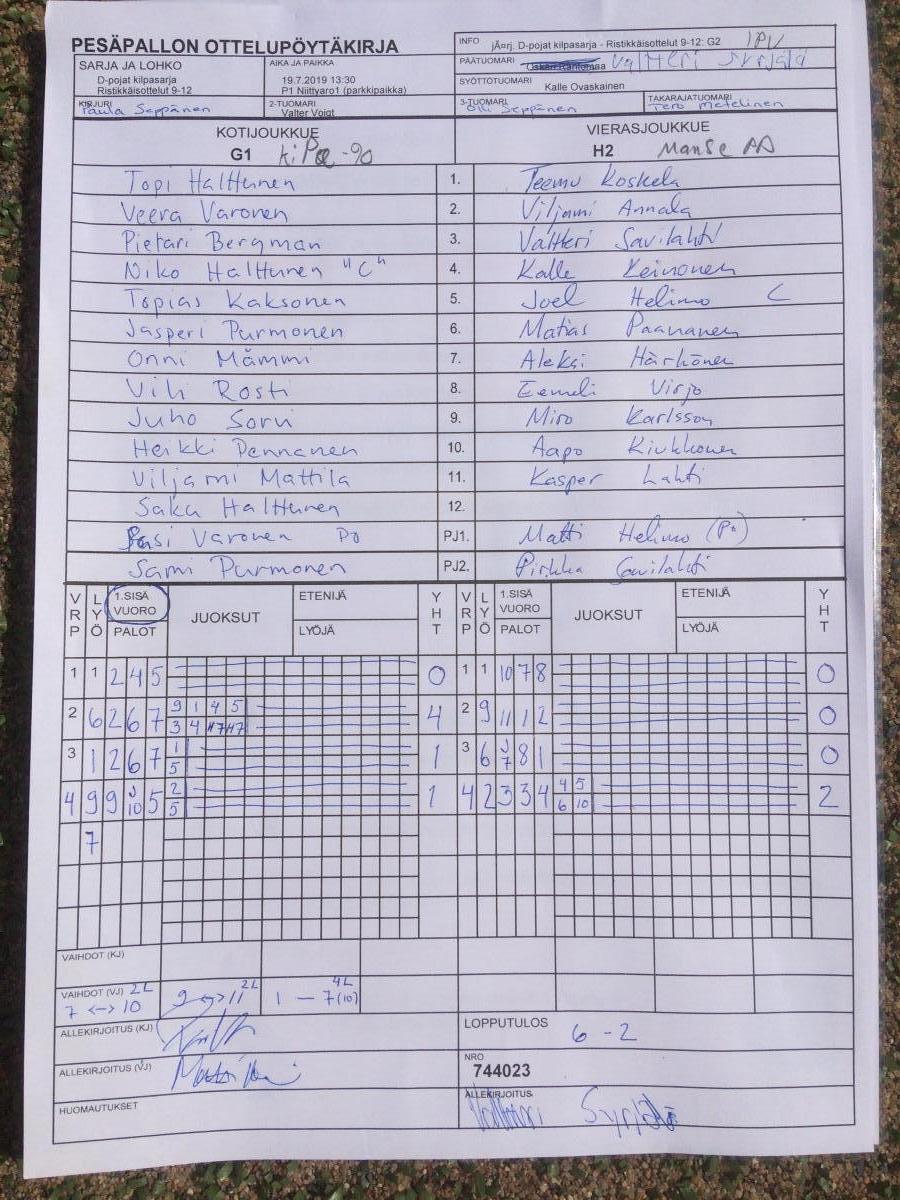 PESÄPALLON OTTELUPÖYTÄKIRJA
INFO jÃ¤rj. D-pojat kilpasarja - Ristikkäisottelut 9-12: G2 IPV
SARJA JA LOHKO
D-pojat kilpasarja
Ristikkäisottelut 9-12
AIKA JA PAIKKA
19.7.2019 13:30
P1 Niittyaro1 (parkkipaikka)
PÄÄTUOMARI Valtteri Syrjälä
SYÖTTÖTUOMARI
Kalle Ovaskainen
KIRJURI
Paula Seppänen
2-TUOMARI
Valter Voigt
3-TUOMARI
Olli Seppänen
TAKARAJATUOMARI
Tero Metelinen
KOTIJOUKKUE
G1 KiPa -90
VIERASJOUKKUE
H2 Manse
Topi Halttunen 1. Teemu Koskela
Veera Varonen 2. Viljami Annala
Pietari Bergman 3. Valtteri Savilahti
Niko Halttunen "C" 4. Kalle Keinonen
Topias Kaksonen 5. Joel Helimo C
Jasperi Purmonen 6. Matias Paananen
Onni Mämmi 7. Aleksi Härkönen
Vili Rosti 8. Eemeli Virjo
Juho Sorvi 9. Miro Karlsson
Heikki Pennanen 10. Aapo Kiukkonen
Viljami Mattila 11. Kasper Lahti
Saku Halttunen 12.
Pasi Varonen Po PJ1. Matti Helimo (Po)
Sami Purmonen PJ2. Pirkka Savilahti
VRP LYÖ 1.SISÄ VUORO PALOT JUOKSUT ETENIJÄ LYÖJÄ YHT VRP LYÖ 1.SISÄ VUORO PALOT JUOKSUT ETENIJÄ LYÖJÄ YHT
1 1 2 4 5 0 1 1 10 7 8 0
2 6 2 6 7 9 1 4 5 4 2 9 11 1 2 0
3 4
3 1 2 6 7 1 1 3 6 J 8 1 0
5 7
4 9 9 J 5 2 1 4 2 3 3 4 4 5 2
10 5 6 10
7
VAIHDOT (KJ)
VAIHDOT (VJ) 2L
7 <-> 10
9 <-> 11 2L
1 — 7(10) 4L
ALLEKIRJOITUS (KJ)
LOPPUTULOS
6 - 2
ALLEKIRJOITUS (VJ)
NRO
744023
HUOMAUTUKSET
ALLEKIRJOITUS
Valtteri Syrjälä